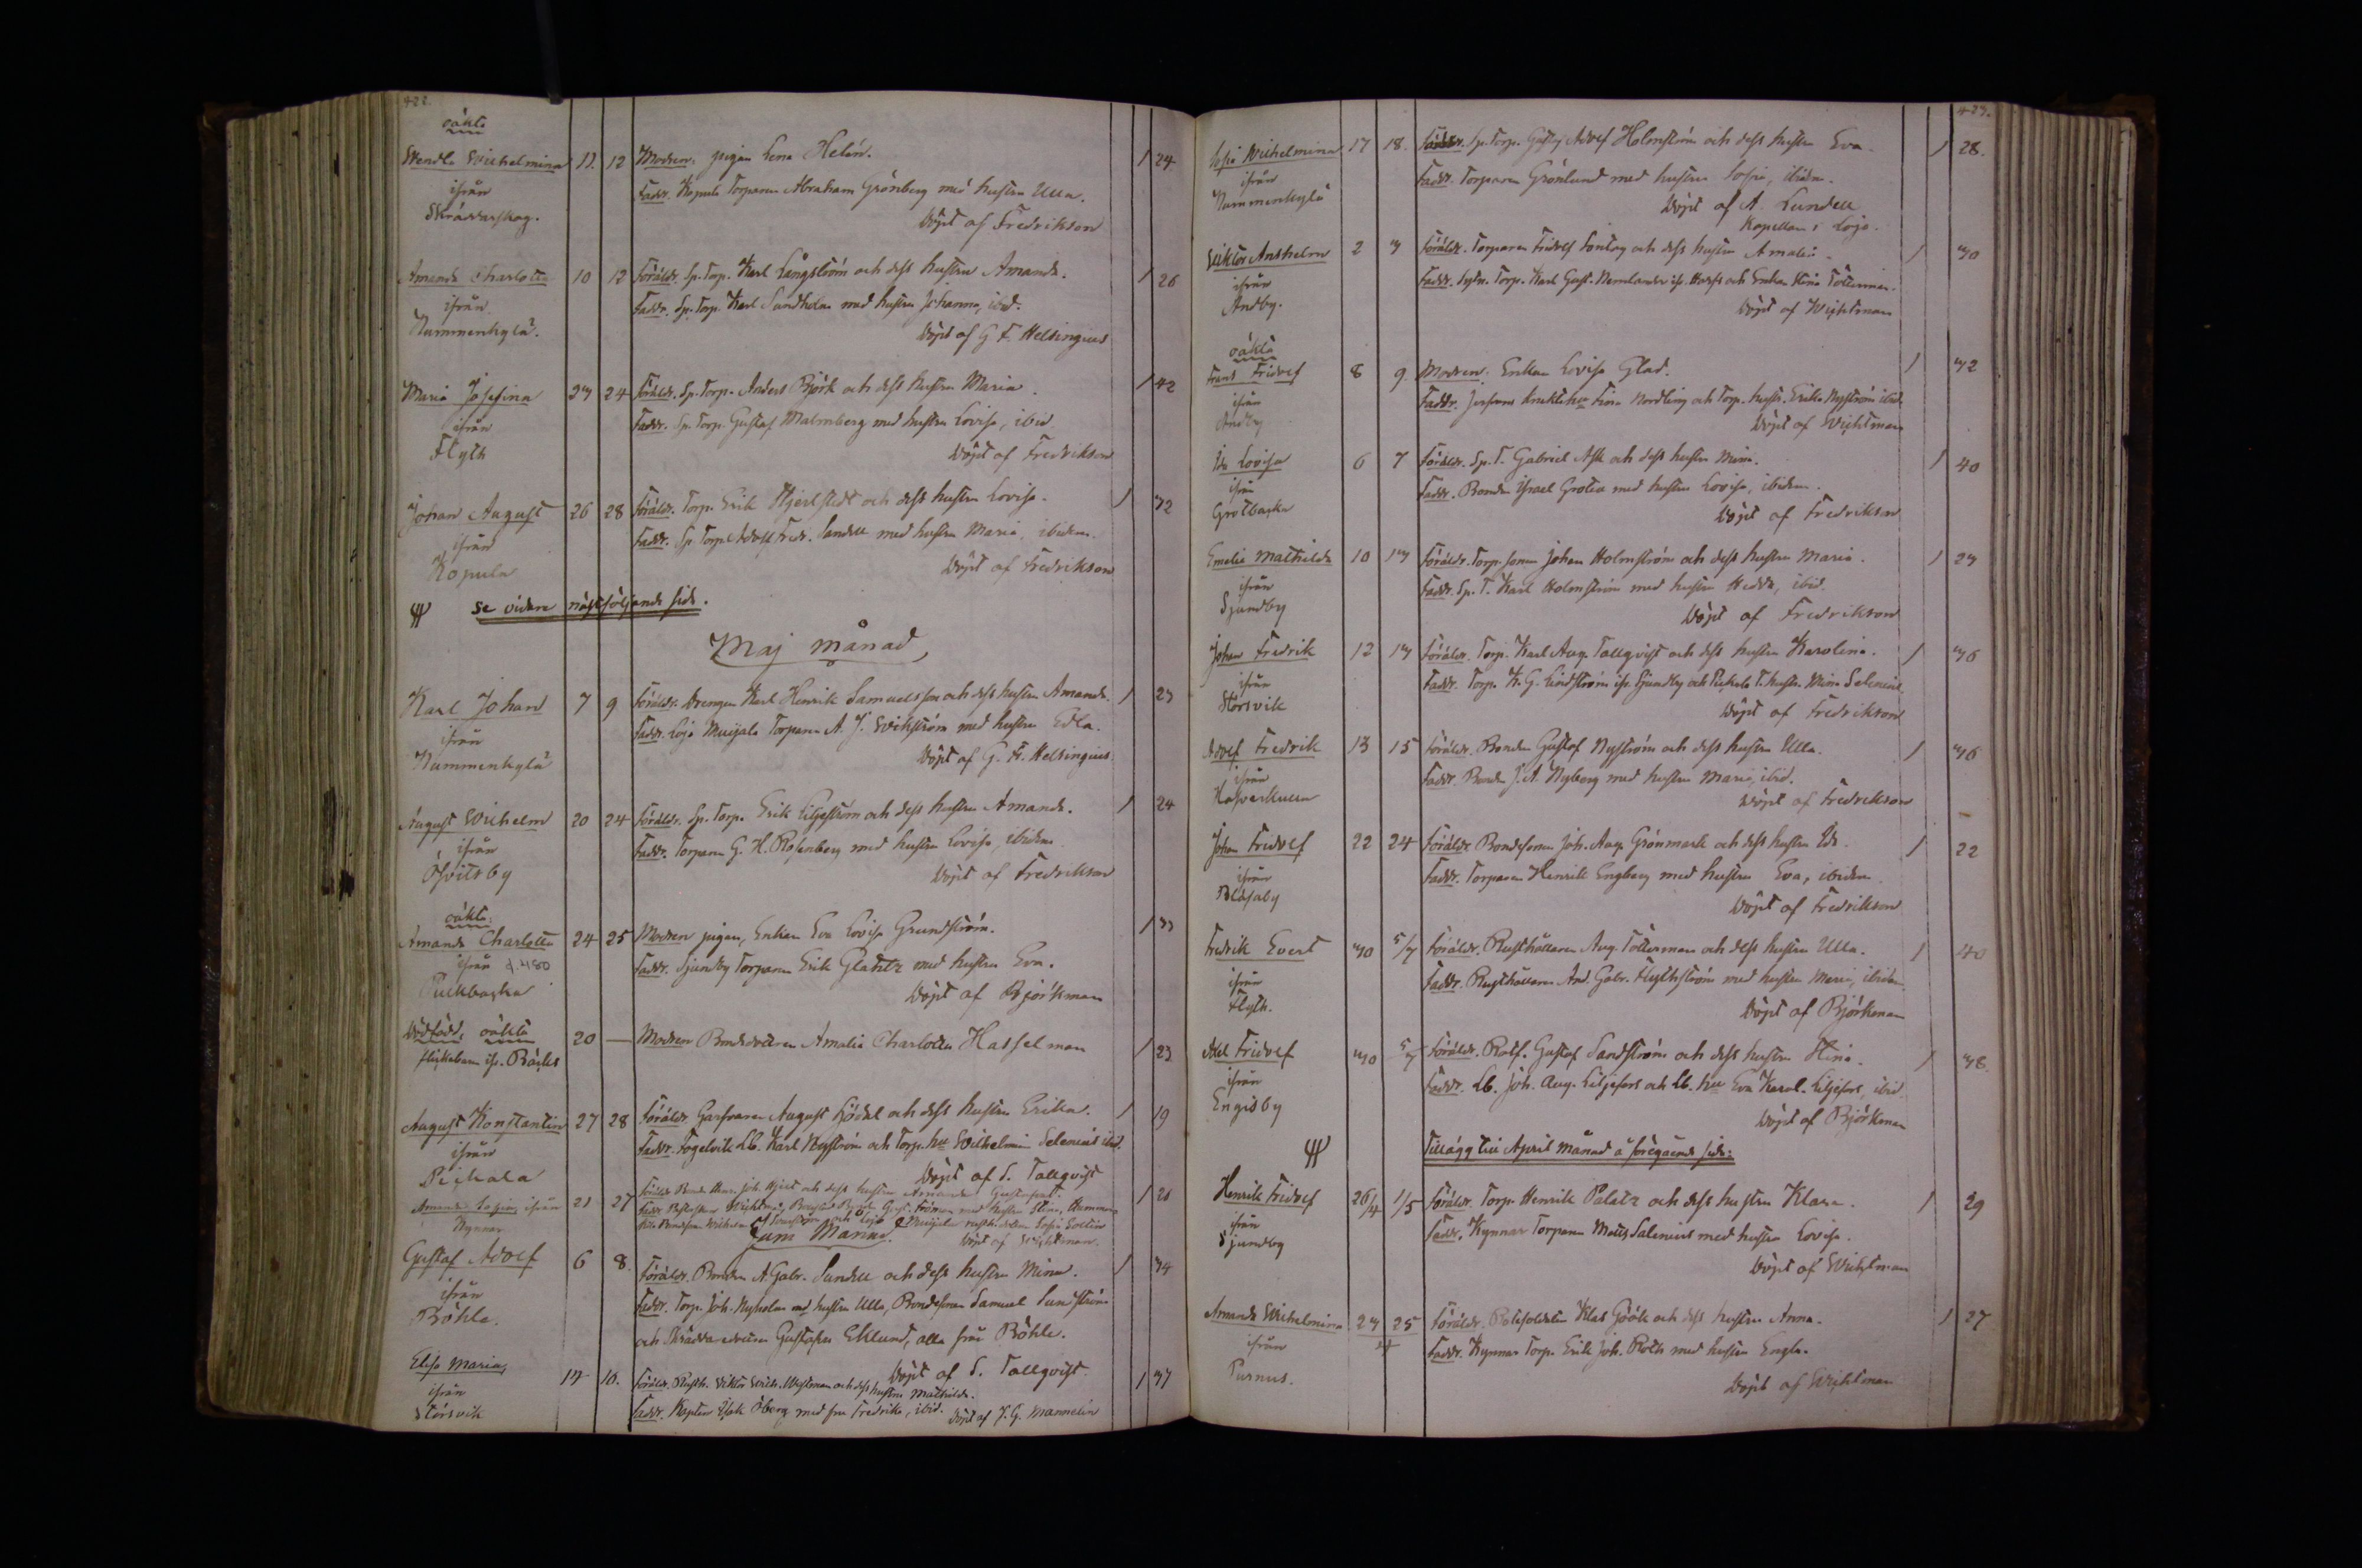 422.
oäkta
Wendla Wilhelmina 11. 12 Modren: pigan Lena Helén. / 24
ifrån Faddr. Kopula Torparen Abraham Grönberg med hustru Ulla.
Skräddarskog. Döpt af Fredrikson
Amanda Charlotta 10 12 Föräldr. Sp. Torp. Karl Långström och dess hustru Amanda. / 26
ifrån Faddr. Sp. Torp. Karl Sandholm med hustru Johanna, ibid.
Nummenkylä. Döpt af G. F. Helsingius
Maria Josefina 23 24 Föräldr. Sp. Torp. Anders Björk och dess hustru Maria. / 42
ifrån Faddr. Sp. Torp. Gustaf Malmberg med hustru Lovisa, ibid.
Flyth Döpt af Fredrikson
Johan August 26 28 Föräldr. Torp. Erik Hjertstedt och dess hustru Lovisa. / 32
ifrån Faddr. Sp. Torp. Adolf Fredr. Sandell med hustru Maria, ibidem.
Kopula Döpt af Fredrikson
se vidare nästföljande sida.
Maj månad
Karl Johan 7 9 Föräldr. Drengen Karl Henrik Samuelsson och dess hustru Amanda. / 23
ifrån Faddr. Lojo Muijala Torparen A. J. Wikström med hustru Edla.
Nummenkylä Döpt af G. F. Helsingius
August Wilhelm 20 24 Föräldr. Sp. Torp. Erik Liljeström och dess hustru Amanda. / 24
ifrån Faddr. Torparen G. H. Rosenberg med hustru Lovisa, ibidem
Öfvitsby Döpt af Fredrikson
oäkta:
Amanda Charlotta 24 25 Modren pigan, Enkan Eva Lovisa Grundström. / 33
ifrån f. 480 Faddr. Sjundby Torparen Erik Glantz med hustru Eva.
Purkbacka Döpt af Björkman
Dödfödd, oäkta 20 — Modren Bondedottren Amalia Charlotta Hasselman / 23
flickebarn ifr. Bäcks
August Konstantin 27 28 Föräldr. Garfvaren August Sjödal och dess hustru Erika. / 19
ifrån Faddr. Fogelvik Lb. Karl Nyström och Torp. hu Wilhelmina Selenius ibid.
Pickala Döpt af S. Tallqvist
Amanda Sofia, ifrån 21 27 Föräldr. Bond. Joh. Hjelt och dess hustru Amanda Gustafsd. / 26
Kynnar Döpt af Wichtman.
Juni Månad.
Gustaf Adolf 6 8. Föräldr. Bonden A. Gabr. Sundell och dess hustru Mina. / 34
ifrån Faddr. Torp. Joh. Nyholm med hustru Ulla, Bondesonen Samuel Sundström
Böhle. och Skräddaredottren Gustafva Eklund, alla från Böhle.
Döpt af S. Tallqvist
Elisa Maria, 14 16. Föräldr. Rusth. Viktor Wilh. Westman och dess hustru Mathilda. / 37
ifrån Faddr. Kapten Isak Öberg med fru Fredrika, ibid. Döpt af J. G. Mannelin
Störsvik
423.
Sofia Wilhelmina 17 18. Föräldr. Sp. Torp. Gustaf Adolf Holmström och dess hustru Eva. / 28.
ifrån Faddr. Torparen Grönlund med hustru Sofia, ibidem.
Nummenkylä Döpt af A. Lundell
Kapellan i Lojo.
Viktor Anshelm 2 3 Föräldr. Torparen Fridolf Sontag och dess hustru Amalia. / 30
ifrån Faddr. Sytn. Torp. Karl Gust. Nemlander ifr. och Enkan Stina Tötterman.
Andby. Döpt af Wichtman
oäkta
Frans Fridolf 8 9. Modren: Enkan Lovisa Glad. / 32
ifrån Faddr. Nordling och Torp. hustr. Erika Nyström ibid.
Andby Döpt af Wichtman
Ida Lovisa 6 7 Föräldr. Sp. T. Gabriel Ask och dess hustru Mina. / 40
ifrån Faddr. Bonden Israel Grotell med hustru Lovisa, ibidem.
Grotbacka Döpt af Fredrikson
Emelia Mathilda 10 13 Föräldr. Torp. sonen Johan Holmström och dess hustru Maria. / 23
ifrån Faddr. Sp. T. Karl Holmström med hustru Hedda, ibid.
Sjundby Döpt af Fredrikson
Johan Fredrik 12 13 Föräldr. Torp. Karl Aug. Tallqvist och dess hustru Karolina. / 36
ifrån Faddr. Torp. K. G. Lindström ifr. Sjundby och Pickala T. hustr. Mina Selenius.
Störsvik Döpt af Fredrikson
Adolf Fredrik 13 15 Föräldr. Bonden Gustaf Nyström och dess hustru Ulla. / 36
ifrån Faddr. Bonden J. A. Nyberg med hustru Maria, ibid.
Hafverkulla Döpt af Fredrikson
Johan Fridolf 22 24 Föräldr Bondesonen Joh. Aug. Grönmark och dess hustru Ida. / 22
ifrån Faddr. Torparen Henrik Engberg med hustru Eva, ibidem
Blåsaby Döpt af Fredrikson
Fredrik Evert 30 5/7 Föräldr. Rusthållaren Aug. Tötterman och dess hustru Ulla. / 40
ifrån Faddr. Rusthållaren And. Gabr. Flythström med hustru Maria, ibidem
Flyth. Döpt af Björkman
Axel Fridolf 30 5/7 Föräldr. Rotef. Gustaf Sandström och dess hustru Stina. / 38.
ifrån Faddr. Lb. Joh. Aug. Liljefors och Lb. hu Eva Karol. Liljefors, ibid
Engisby Döpt af Björkman
Tillägg till April månad å föregående sida:
Henrik Fridolf 26/4 1/5 Föräldr. Torp. Henrik Palatz och dess hustru Klara. / 29
ifrån Faddr. Kynnar Torparen Matts Salenius med hustru Lovisa.
Sjundby Döpt af Wichtman
Amanda Wilhelmina 23 25 Föräldr. Rotesoldaten Klas Göök och dess hustru Anna. / 27
ifrån 4 Faddr. Kynnar Torp. Erik Joh. Roth med hustru Engla.
Purnus. Döpt af Wichtman